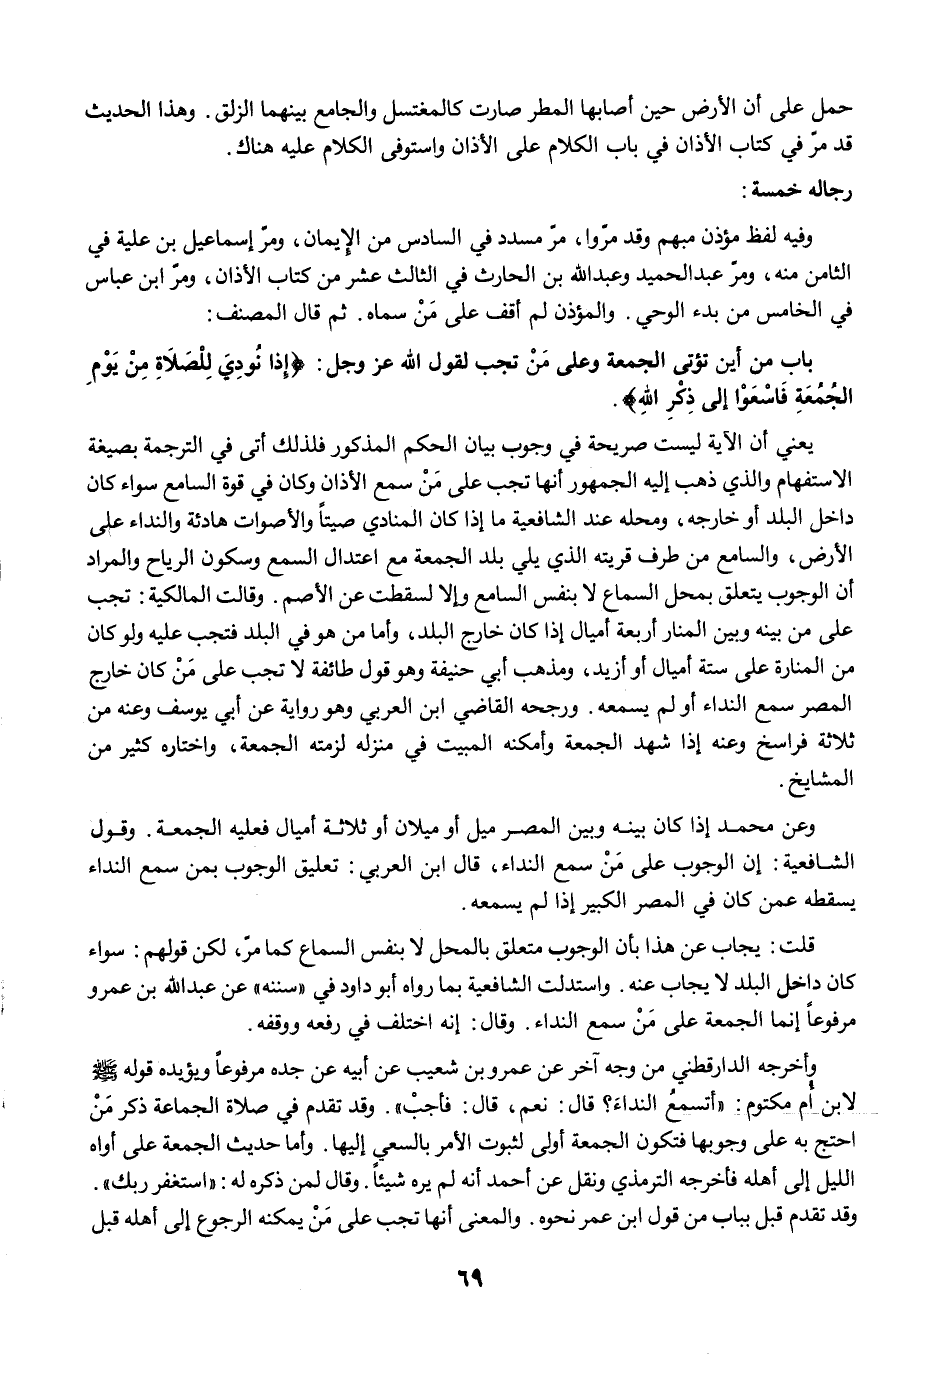 حمل على أن الأرض حين أصابها المطر صارت كالمغتسل والجامع بينهما الزلق. وهذا الحديث
قد مرّ في كتاب الأذان في باب الكلام على الأذان واستوفى الكلام عليه هناك.
رجاله خمسة:
وفيه لفظ مؤذن مبهم وقد مرّوا، مرّ مسدد في السادس من الإيمان، ومرّ إسماعيل بن علية في
الثامن منه، ومرّ عبدالحميد وعبدالله بن الحارث في الثالث عشر من كتاب الأذان، ومرّ ابن عباس
في الخامس من بدء الوحي. والمؤذن لم أقف على مَنْ سماه. ثم قال المصنف:
باب من أين تؤتى الجمعة وعلى مَنْ تجب لقول الله عز وجل: ﴿إِذَا نُودِيَ لِلْصَلَاةِ مِنْ يَوْمِ
الجُمُعَةِ فَاسْعَوْا إلى ذِكْرِ اللهِ﴾.
يعني أن الآية ليست صريحة في وجوب بيان الحكم المذكور فلذلك أتى في الترجمة بصيغة
الاستفهام والذي ذهب إليه الجمهور أنها تجب على مَنْ سمع الأذان وكان في قوة السامع سواء كان
داخل البلد أو خارجه، ومحله عند الشافعية ما إذا كان المنادي صيتاً والأصوات هادئة والنداء على
الأرض، والسامع من طرف قريته الذي يلي بلد الجمعة مع اعتدال السمع وسكون الرياح والمراد
أن الوجوب يتعلق بمحل السماع لا بنفس السامع وإلا لسقطت عن الأصم. وقالت المالكية: تجب
على من بينه وبين المنار أربعة أميال إذا كان خارج البلد، وأما من هو في البلد فتجب عليه ولو كان
من المنارة على ستة أميال أو أزيد، ومذهب أبي حنيفة وهو قول طائفة لا تجب على مَنْ كان خارج
المصر سمع النداء أو لم يسمعه. ورجحه القاضي ابن العربي وهو رواية عن أبي يوسف وعنه من
ثلاثة فراسخ وعنه إذا شهد الجمعة وأمكنه المبيت في منزله لزمته الجمعة، واختاره كثير من
المشايخ.
وعن محمد إذا كان بينه وبين المصر ميل أو ميلان أو ثلاثة أميال فعليه الجمعة. وقول
الشافعية: إن الوجوب على مَنْ سمع النداء، قال ابن العربي: تعليق الوجوب بمن سمع النداء
يسقطه عمن كان في المصر الكبير إذا لم يسمعه.
قلت: يجاب عن هذا بأن الوجوب متعلق بالمحل لا بنفس السماع كما مرّ، لكن قولهم: سواء
كان داخل البلد لا يجاب عنه. واستدلت الشافعية بما رواه أبو داود في «سننه» عن عبدالله بن عمرو
مرفوعاً إنما الجمعة على مَنْ سمع النداء. وقال: إنه اختلف في رفعه ووقفه.
وأخرجه الدارقطني من وجه آخر عن عمرو بن شعيب عن أبيه عن جده مرفوعاً ويؤيده قوله ﷺ
لابن أم مكتوم: «أتسمعُ النداءَ؟ قال: نعم، قال: فأجبْ». وقد تقدم في صلاة الجماعة ذكر مَنْ
احتج به على وجوبها فتكون الجمعة أولى لثبوت الأمر بالسعي إليها. وأما حديث الجمعة على أواه
الليل إلى أهله فأخرجه الترمذي ونقل عن أحمد أنه لم يره شيئاً. وقال لمن ذكره له: «استغفر ربك».
وقد تقدم قبل بباب من قول ابن عمر نحوه. والمعنى أنها تجب على مَنْ يمكنه الرجوع إلى أهله قبل
٦٩